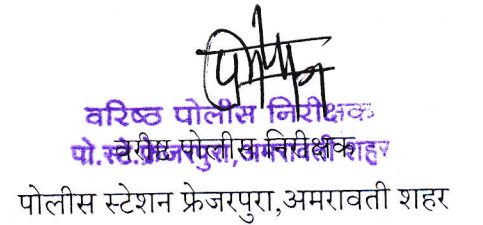 वरिष्ठ पोलीस निरीक्षक
पो.स्टे.फ्रेजरपुरा,अमरावती शहर
वरीष्ठ पोलीस निरीक्षक
पोलीस स्टेशन फ्रेजरपुरा,अमरावती शहर